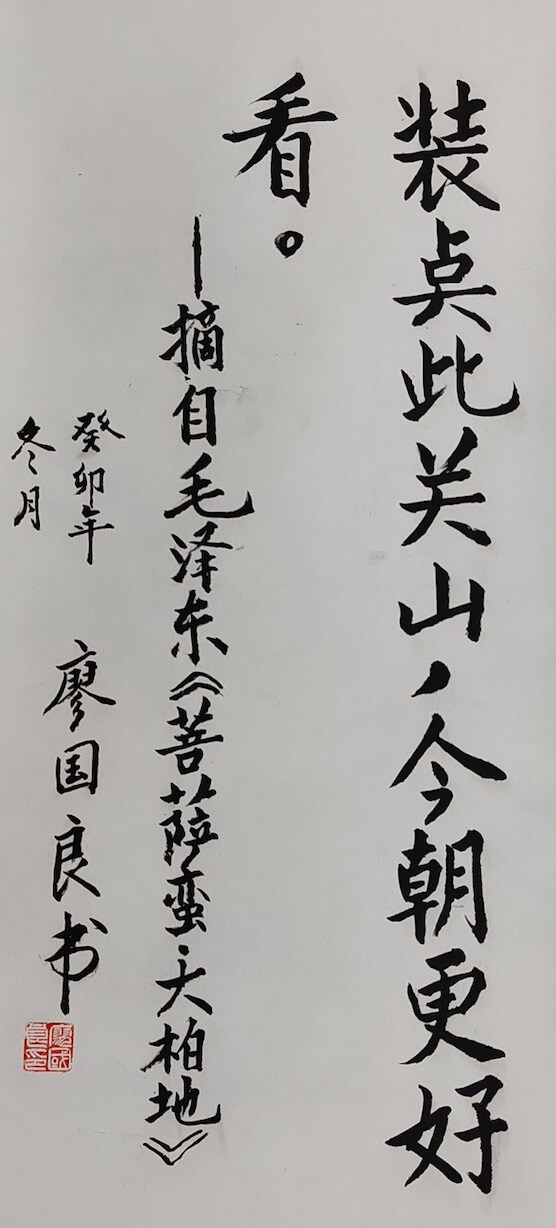 装点此关山，今朝更好
看。
—摘自毛泽东《菩萨蛮·大柏地》
癸卯年
冬月
廖国良书
廖國良印